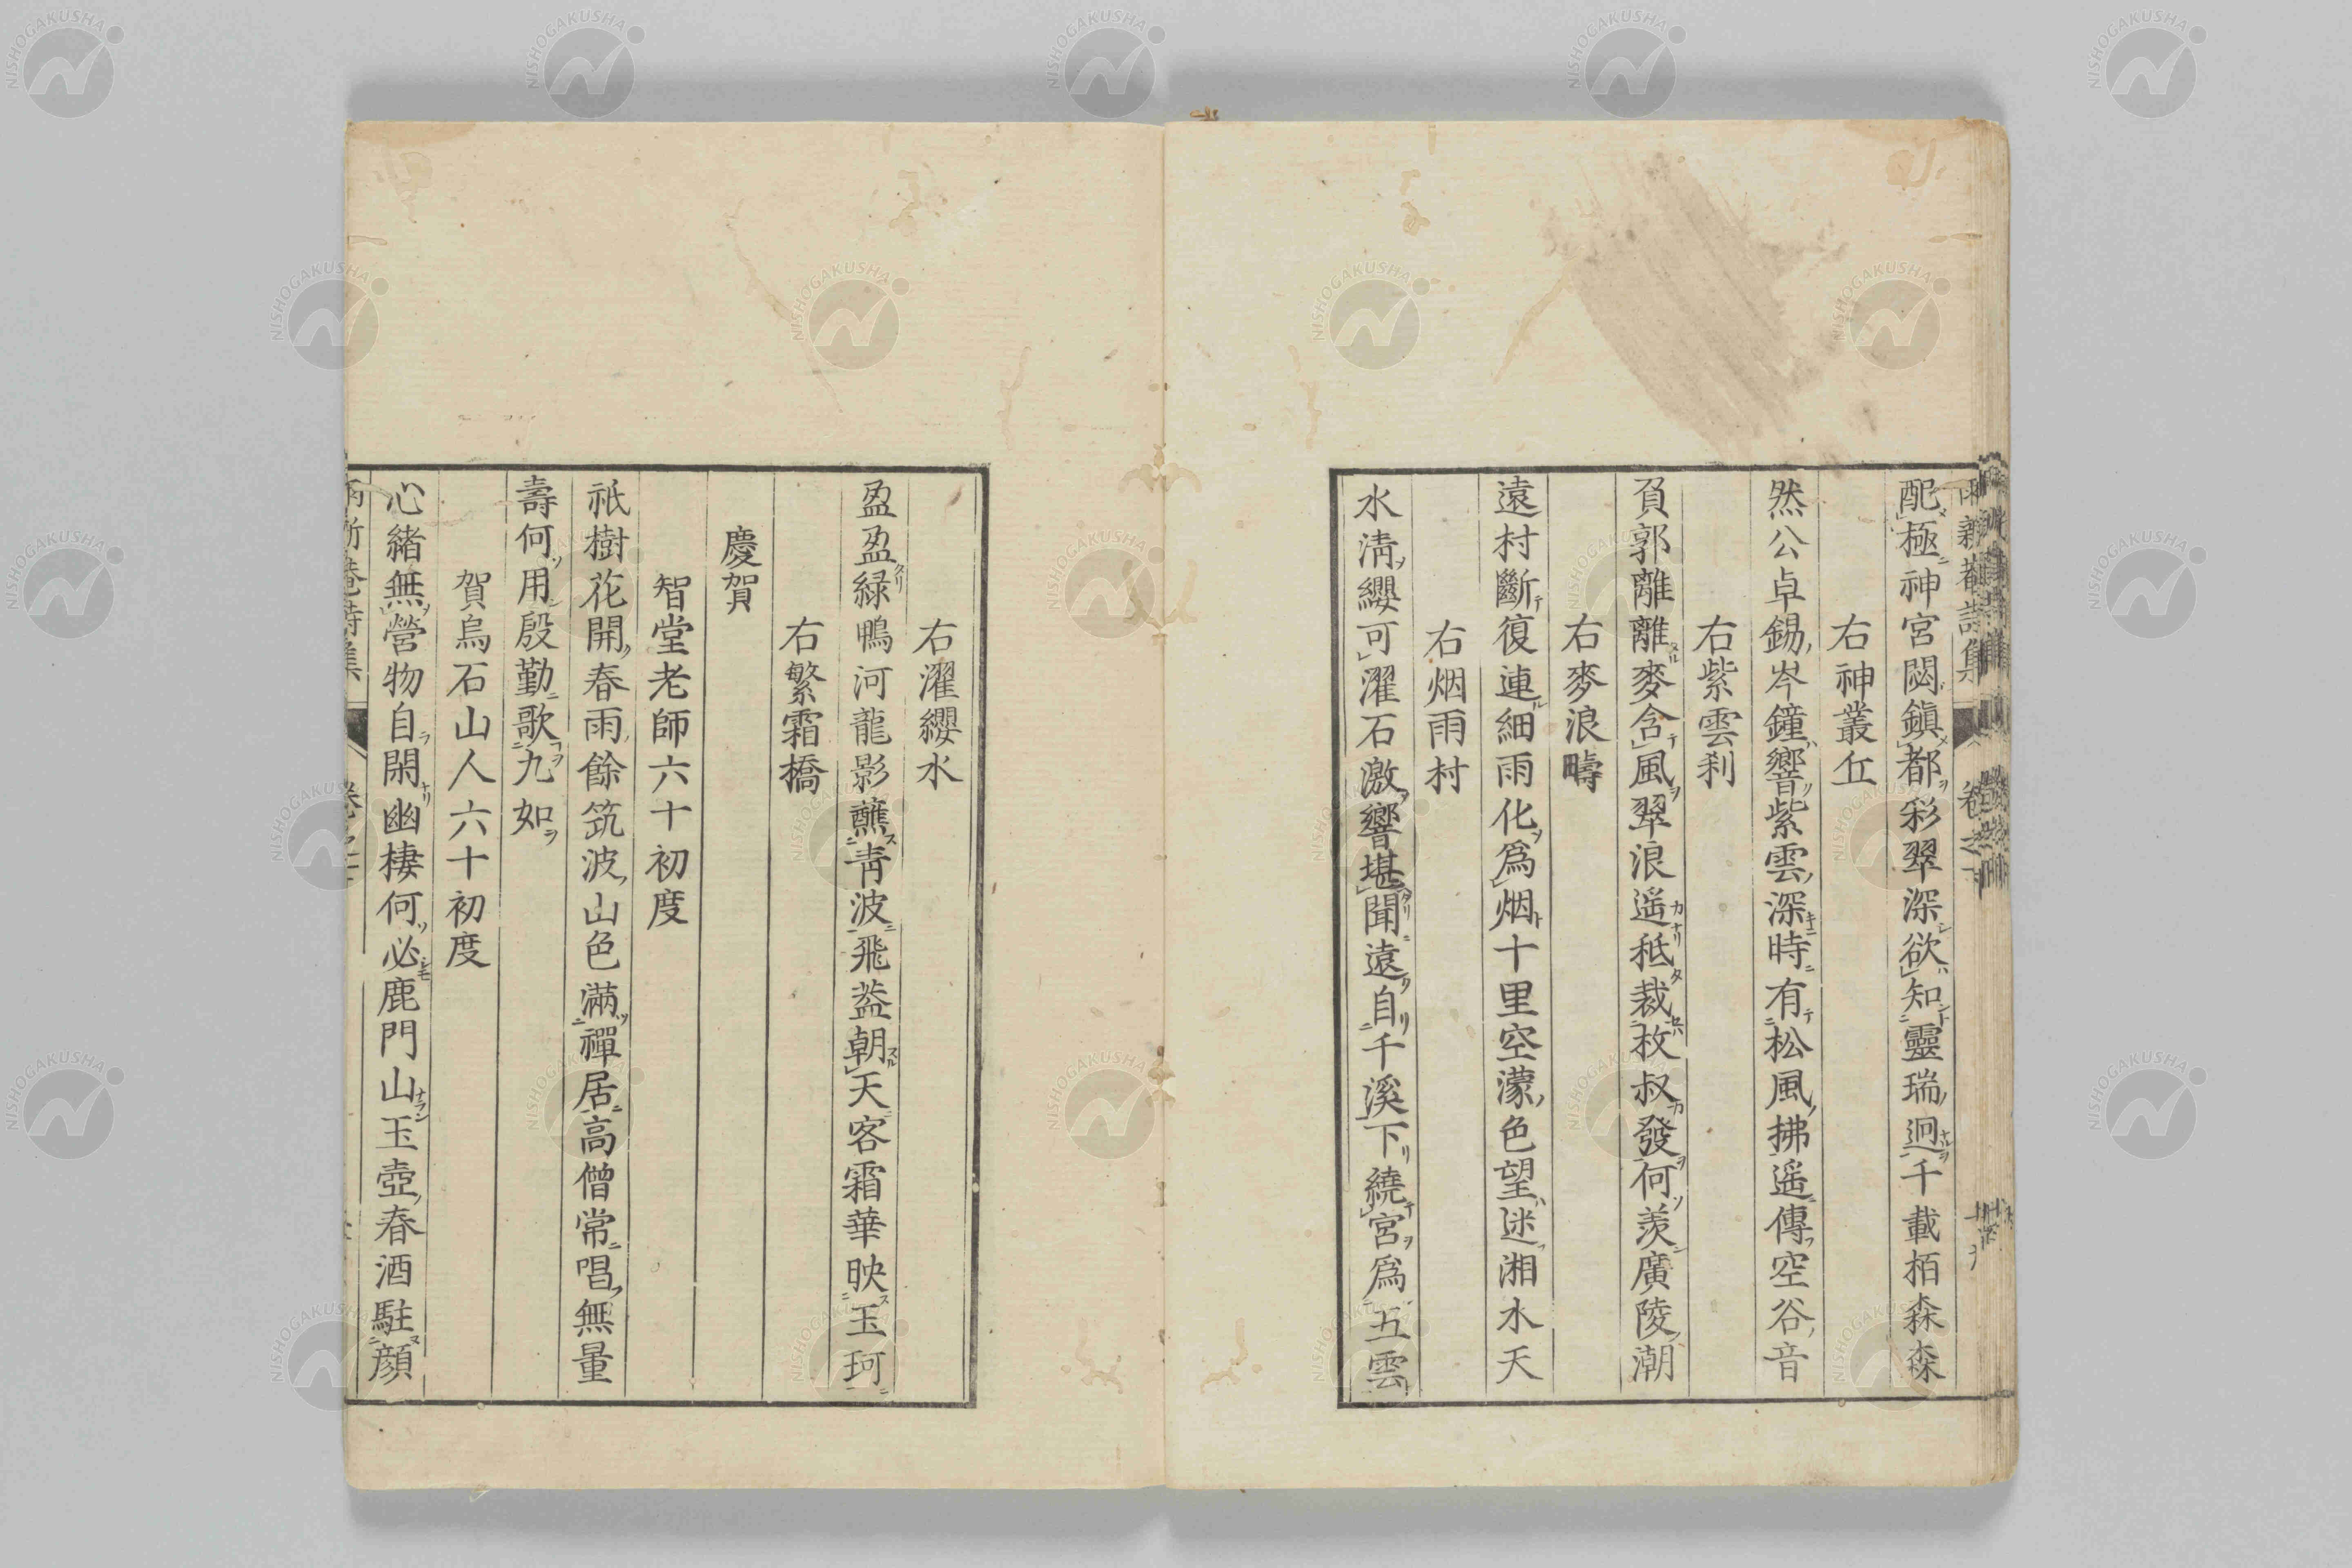 配極神宮閟鎭都彩翠深欲知靈瑞迥千載栢森森
右神叢丘
然公卓錫岑鐘響紫雲深時有松風拂遥傳空谷音
右紫雲刹
負郭離離麥含風翠浪遥秪裁枚叔發何羨廣陵潮
右麥浪疇
遠村斷復連細雨化爲烟十里空濛色望迷湘水天
右烟雨村
水淸纓可濯石激響堪聞遠自千溪下繞宮爲五雲
右濯纓水
盈盈緑鴨河龍影蘸靑波飛葢朝天客霜華映玉珂
右繁霜橋
慶賀
智堂老師六十初度
祇樹花開春雨餘筑波山色滿禪居高僧常唱無量
壽何用殷勤歌九如
賀烏石山人六十初度
心緒無營物自閑幽棲何必鹿門山玉壺春酒駐顔
NISHOGAKUSHA